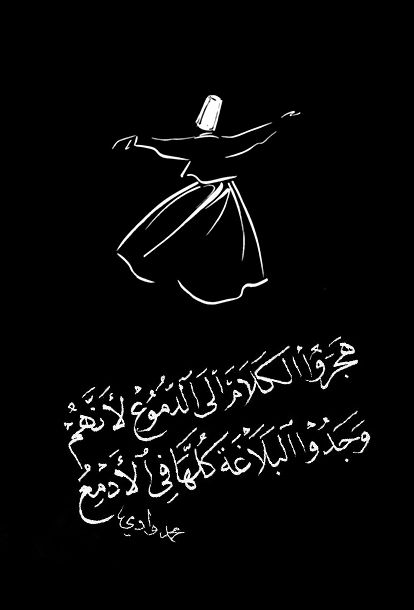 هَجَرُوا الكَلَامَ إِلَى الدُّمُوعِ لأَنَّهُمْ
وَجَدُوا البَلَاغَةَ كُلَّهَا فِي الأَدْمُعِ